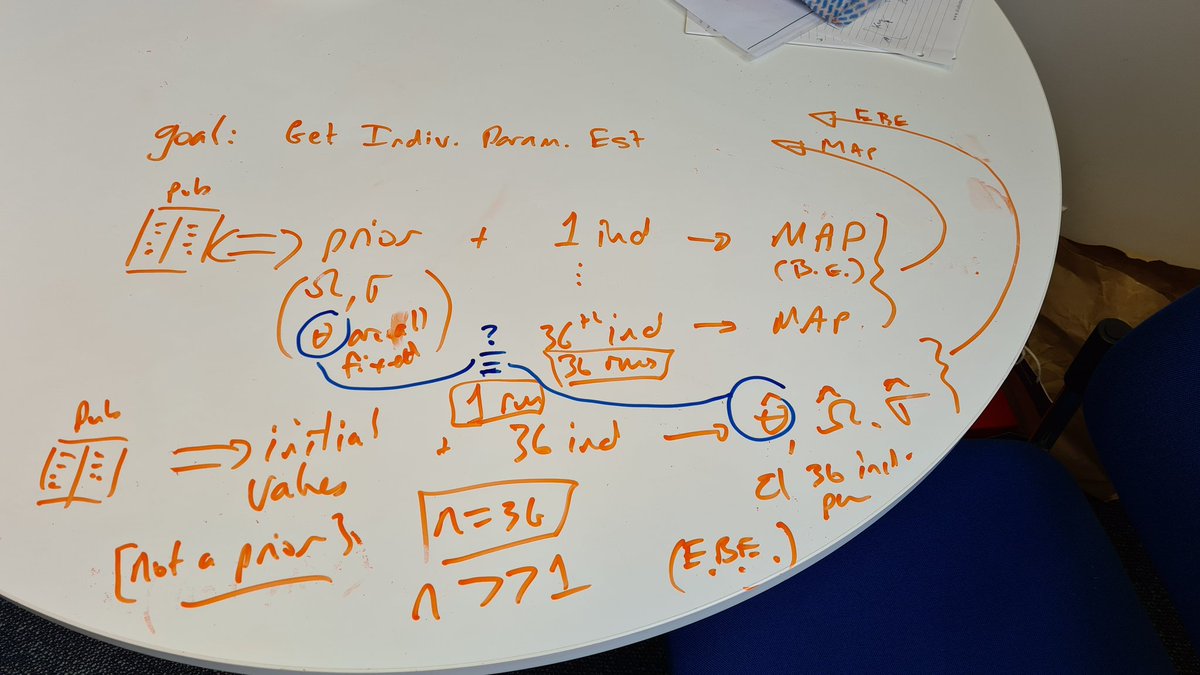 goal: Get Indiv. Param. Est
EBE
MAP
pub
⇔ prior + 1 ind → MAP
(B.E.)
(Ω, σ
θ are all
fixed)
⋮
36th ind → MAP
36 runs
?
≡
1 run
Pub
⇒ initial values + 36 ind → θ̂, Ω̂, σ̂
[not a prior]
n=36
n >> 1
36 ind.
(E.B.E.)